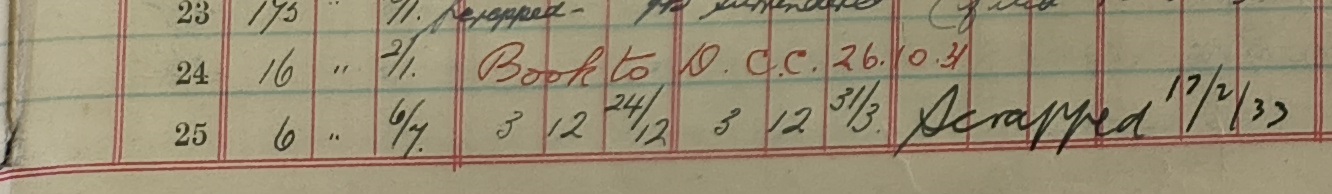 23 195 " 7/1. scrapped - surrendered
24 16 " 2/1. Book to D. C.C. 26.10.31
25 6 " 6/7. 3 12 24/12 3 12 31/3. Scrapped 17/2/33